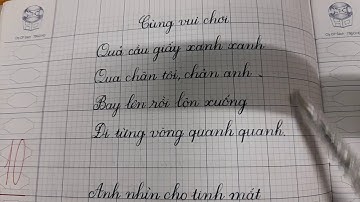 Cùng vui chơi
Quả cầu giấy xanh xanh
Qua chân tôi, chân anh.
Bay lên rồi lộn xuống
Đi từng vòng quanh quanh.
Anh nhìn cho tinh mắt
10